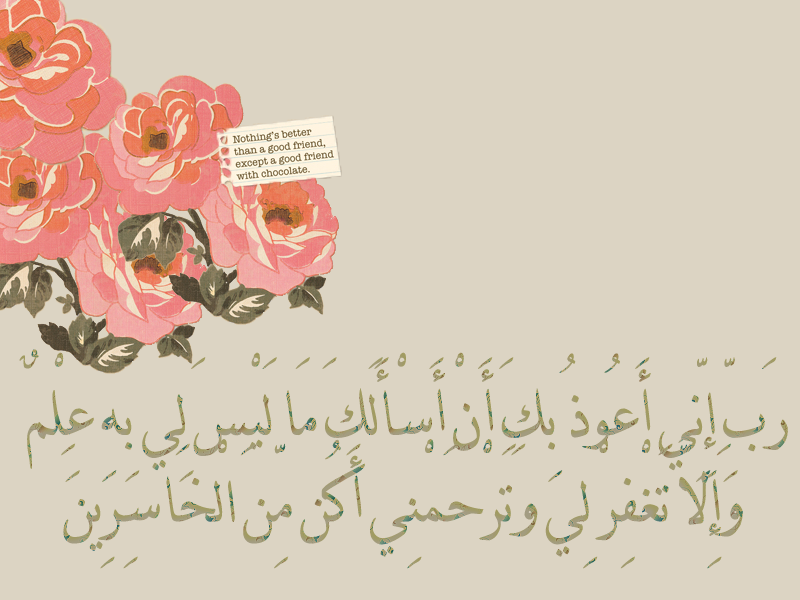 Nothing's better
than a good friend,
except a good friend
with chocolate.
رب إني أعوذ بك أن أسألك ما ليس لي به علم
وإلا تغفر لي وترحمني أكن من الخاسرين